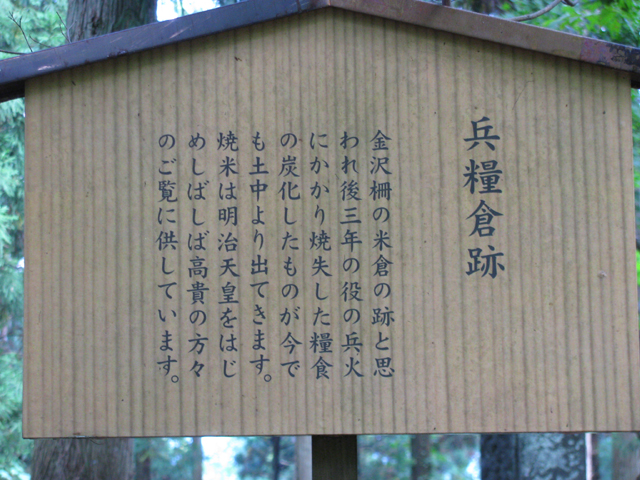 兵糧倉跡
金沢柵の米倉の跡と思
われ後三年の役の兵火
にかかり焼失した糧食
の炭化したものが今で
も土中より出てきます。
焼米は明治天皇をはじ
めしばしば高貴の方々
のご覧に供しています。